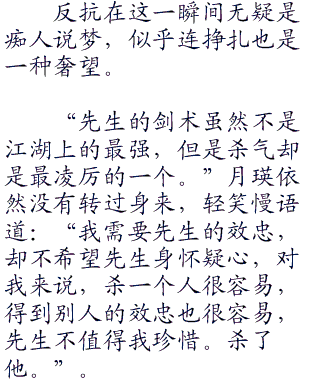 反抗在这一瞬间无疑是
痴人说梦，似乎连挣扎也是
一种奢望。
“先生的剑术虽然不是
江湖上的最强，但是杀气却
是最凌厉的一个。”月瑛依
然没有转过身来，轻笑慢语
道：“我需要先生的效忠，
却不希望先生身怀疑心，对
我来说，杀一个人很容易，
得到别人的效忠也很容易，
先生不值得我珍惜。杀了
他。”。